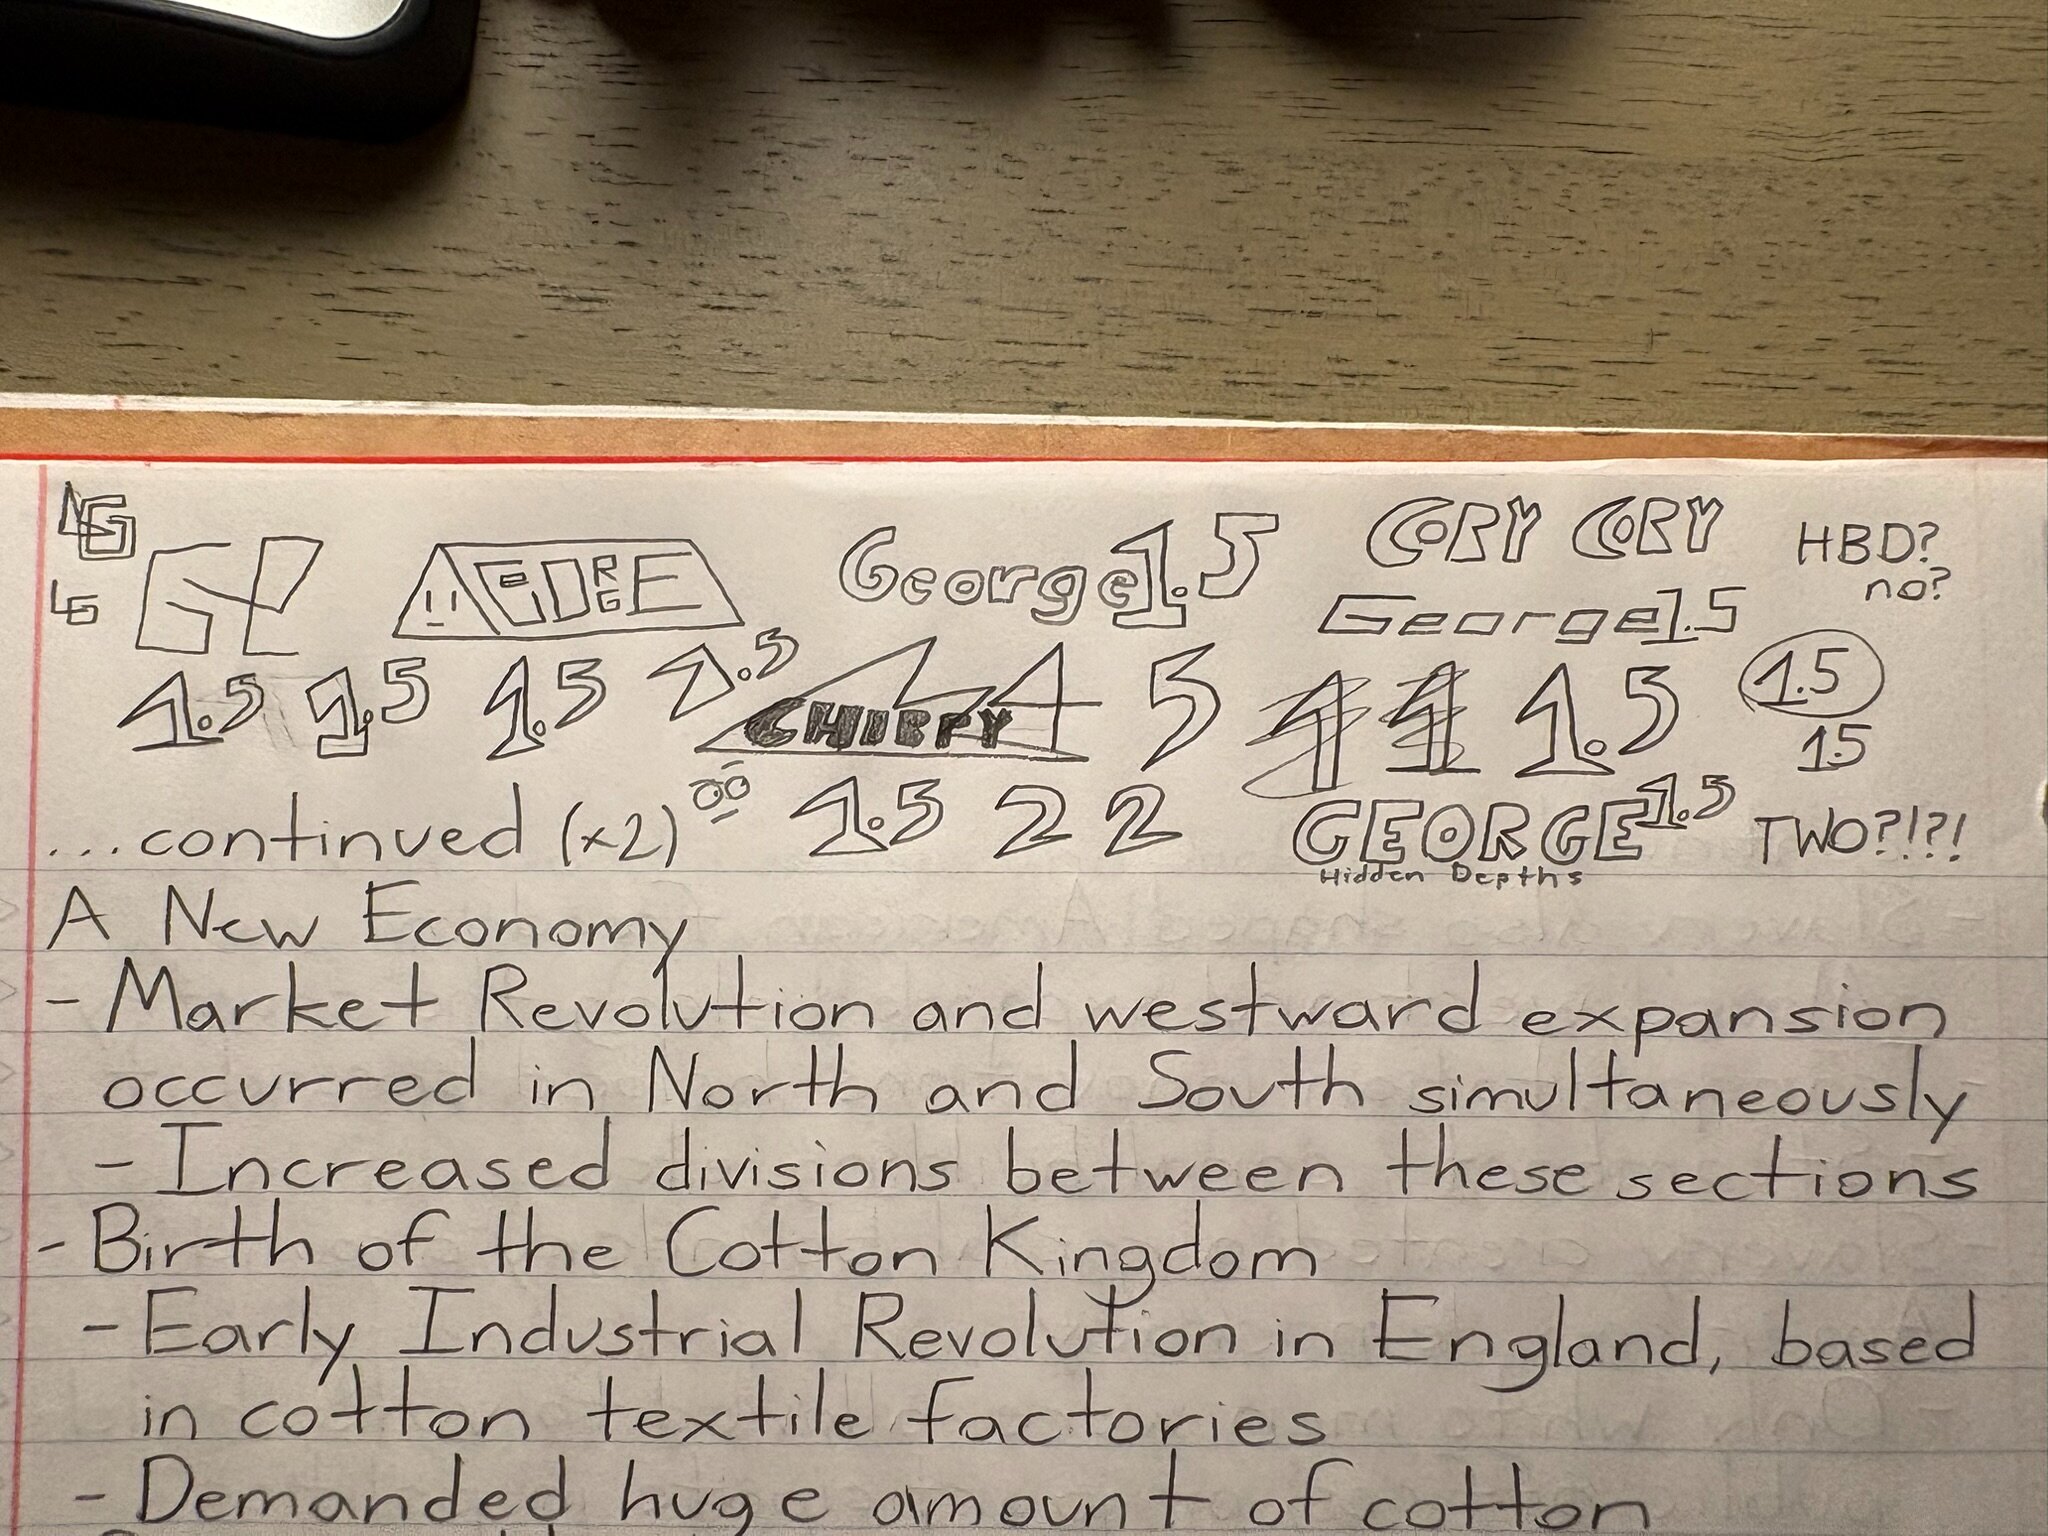 NG
LG
George 1.5
CORY CORY
HBD?
no?
George 1.5
1.5 1.5 1.5 1.5
CHIBFY
5
1 1 1.5
1.5
1.5
...continued (x2)
1.5 2 2
GEORGE 1.5
Hidden Depths
TWO?!?!
A New Economy
- Market Revolution and westward expansion
occurred in North and South simultaneously
- Increased divisions between these sections
- Birth of the Cotton Kingdom
- Early Industrial Revolution in England, based
in cotton textile factories
- Demanded huge amount of cotton